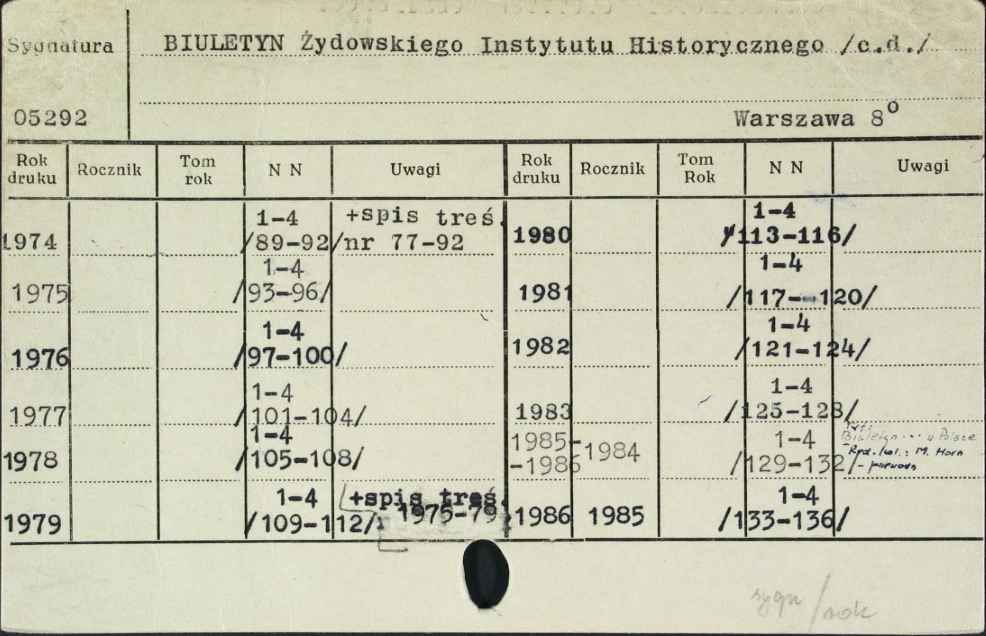 Sygnatura
BIULETYN Żydowskiego Instytutu Historycznego /c.d./
05292
Warszawa 8°
Rok druku Rocznik Tom rok N N Uwagi Rok druku Rocznik Tom Rok N N Uwagi
1974 1-4 /89-92/ +spis treś. nr 77-92
1975 1-4 /93-96/
1976 1-4 /97-100/
1977 1-4 /101-104/
1978 1-4 /105-108/
1979 1-4 /109-112/ +spis treś. 1975-79
1980 1-4 /113-116/
1981 1-4 /117-120/
1982 1-4 /121-124/
1983 1-4 /125-128/
1985-
-1986 1984 1-4 /129-132/ Biuletyn ... w Polsce
Red. : M. Horn
1986 1985 1-4 /133-136/
sygn/rok